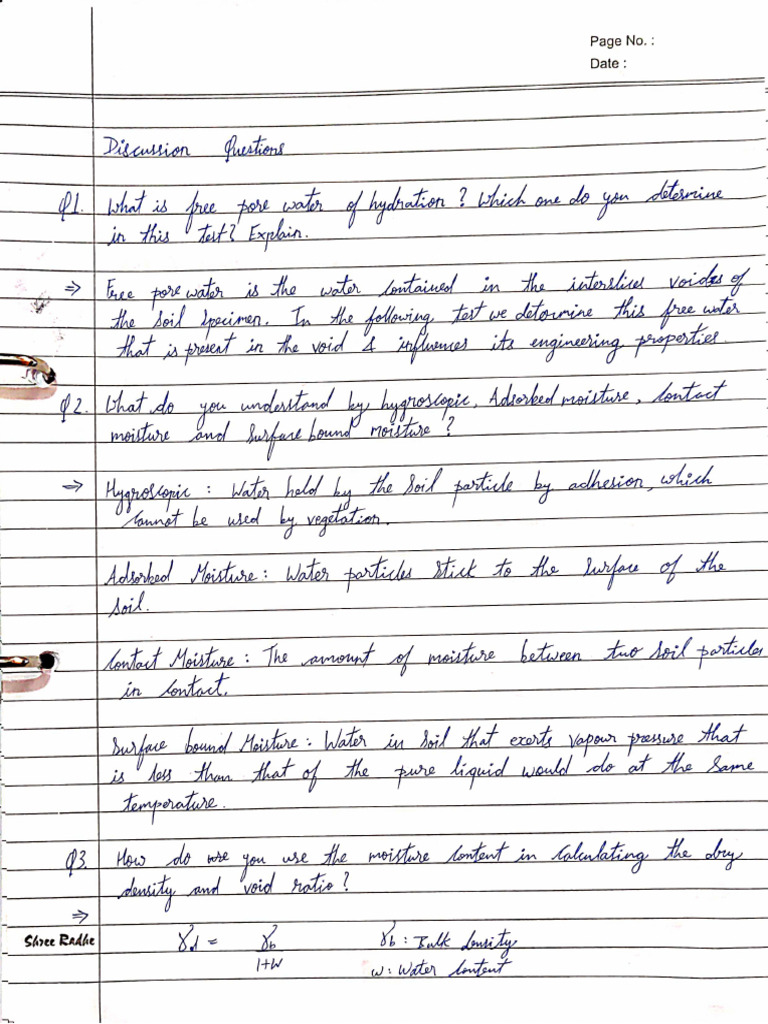 Page No. :
Date :
Discussion Questions
Q1. What is free pore water of hydration ? Which one do you determine
in this test? Explain.
⇒ Free pore water is the water contained in the interslices voids of
the soil specimen. In the following test we determine this free water
that is present in the void & influences its engineering properties.
Q2. What do you understand by hygroscopic, Adsorbed moisture, contact
moisture and surface bound moisture ?
⇒ Hygroscopic : Water held by the soil particle by adhesion, which
cannot be used by vegetation.
Adsorbed Moisture : Water particles stick to the surface of the
soil.
Contact Moisture : The amount of moisture between two soil particles
in contact.
Surface bound Moisture : Water in soil that exerts vapour pressure that
is less than that of the pure liquid would do at the same
temperature.
Q3. How do you use the moisture content in calculating the dry
density and void ratio ?
⇒
Shree Radhe
γd = γb / 1+w γb : Bulk density
w : Water content